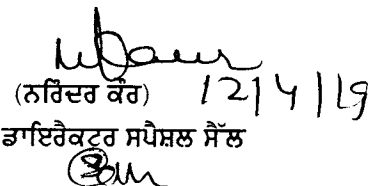 (ਨਰਿੰਦਰ ਕੌਰ) 12/4/19
ਡਾਇਰੈਕਟਰ ਸਪੈਸ਼ਲ ਸੈੱਲ